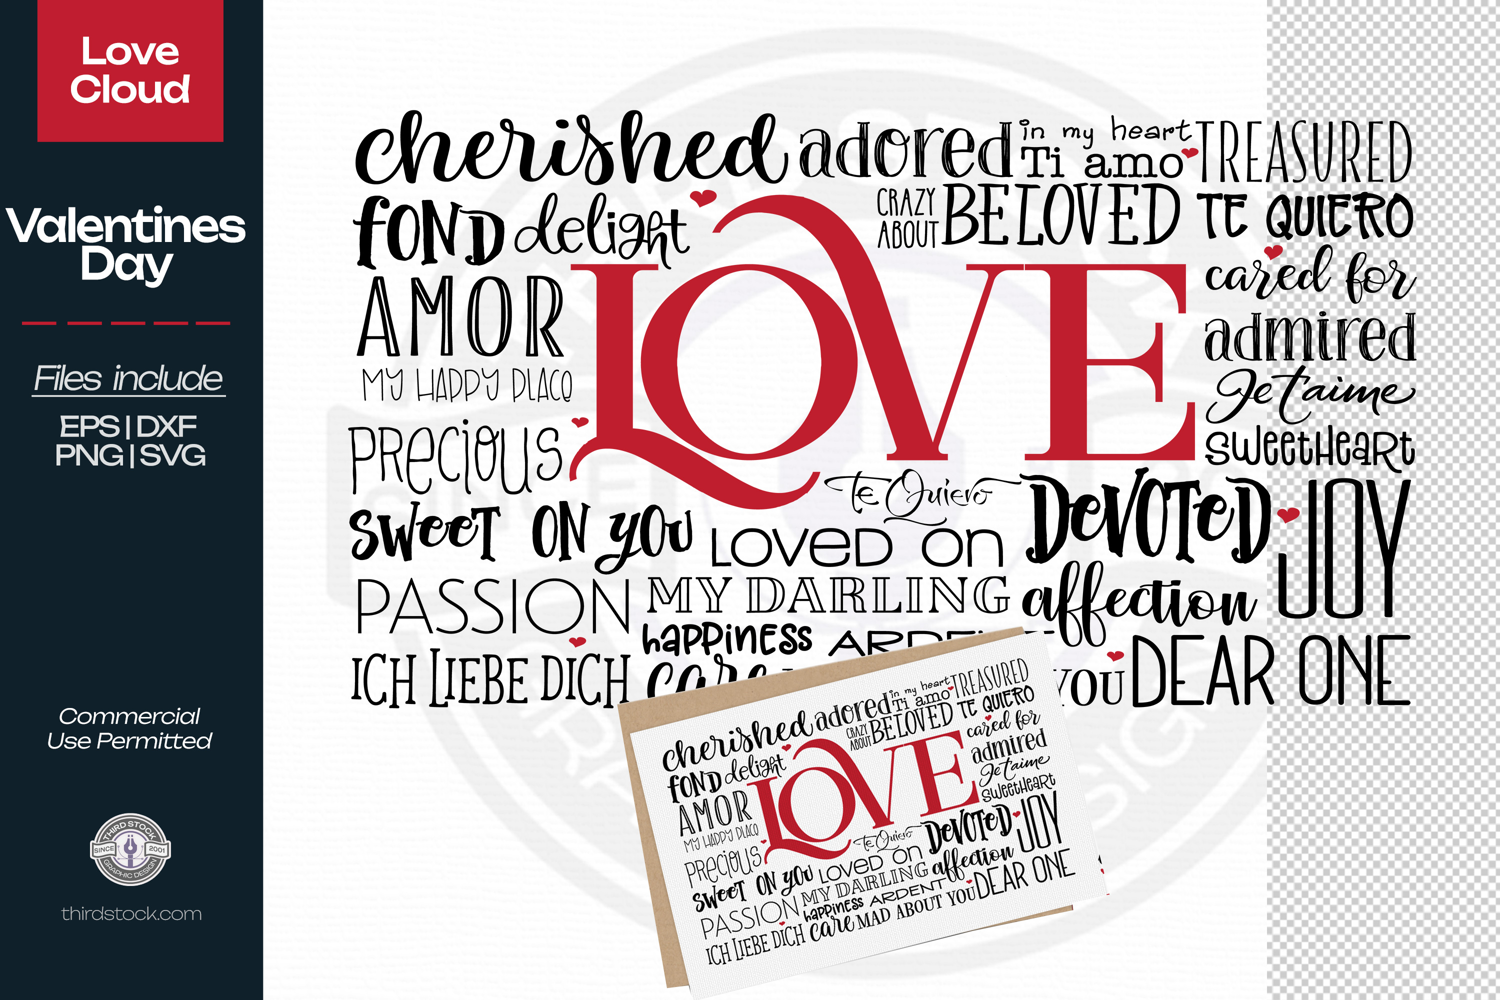 Love
Cloud
Valentines
Day
Files include
EPS | DXF
PNG | SVG
Commercial
Use Permitted
THIRD STOCK
SINCE 2001
GRAPHIC DESIGN
thirdstock.com
cherished adored in my heart TREASURED
Ti amo
fond delight CRAZY ABOUT BELOVED TE QUIERO
LOVE
cared for
AMOR admired
MY HAPPY PLACE Je t'aime
PRECIOUS sweetheart
Te Quiero DEVOTED JOY
sweet on you LOVED on
PASSION MY DARLING affection
happiness
ICH LIEBE DICH care YOU DEAR ONE
cherished adored in my heart TREASURED
Ti amo
fond delight CRAZY ABOUT BELOVED TE QUIERO
LOVE
cared for
AMOR admired
MY HAPPY PLACE Je t'aime
PRECIOUS sweetheart
Te Quiero DEVOTED JOY
sweet on you LOVED on
PASSION MY DARLING affection
happiness ARDENT
ICH LIEBE DICH care MAD ABOUT YOU DEAR ONE